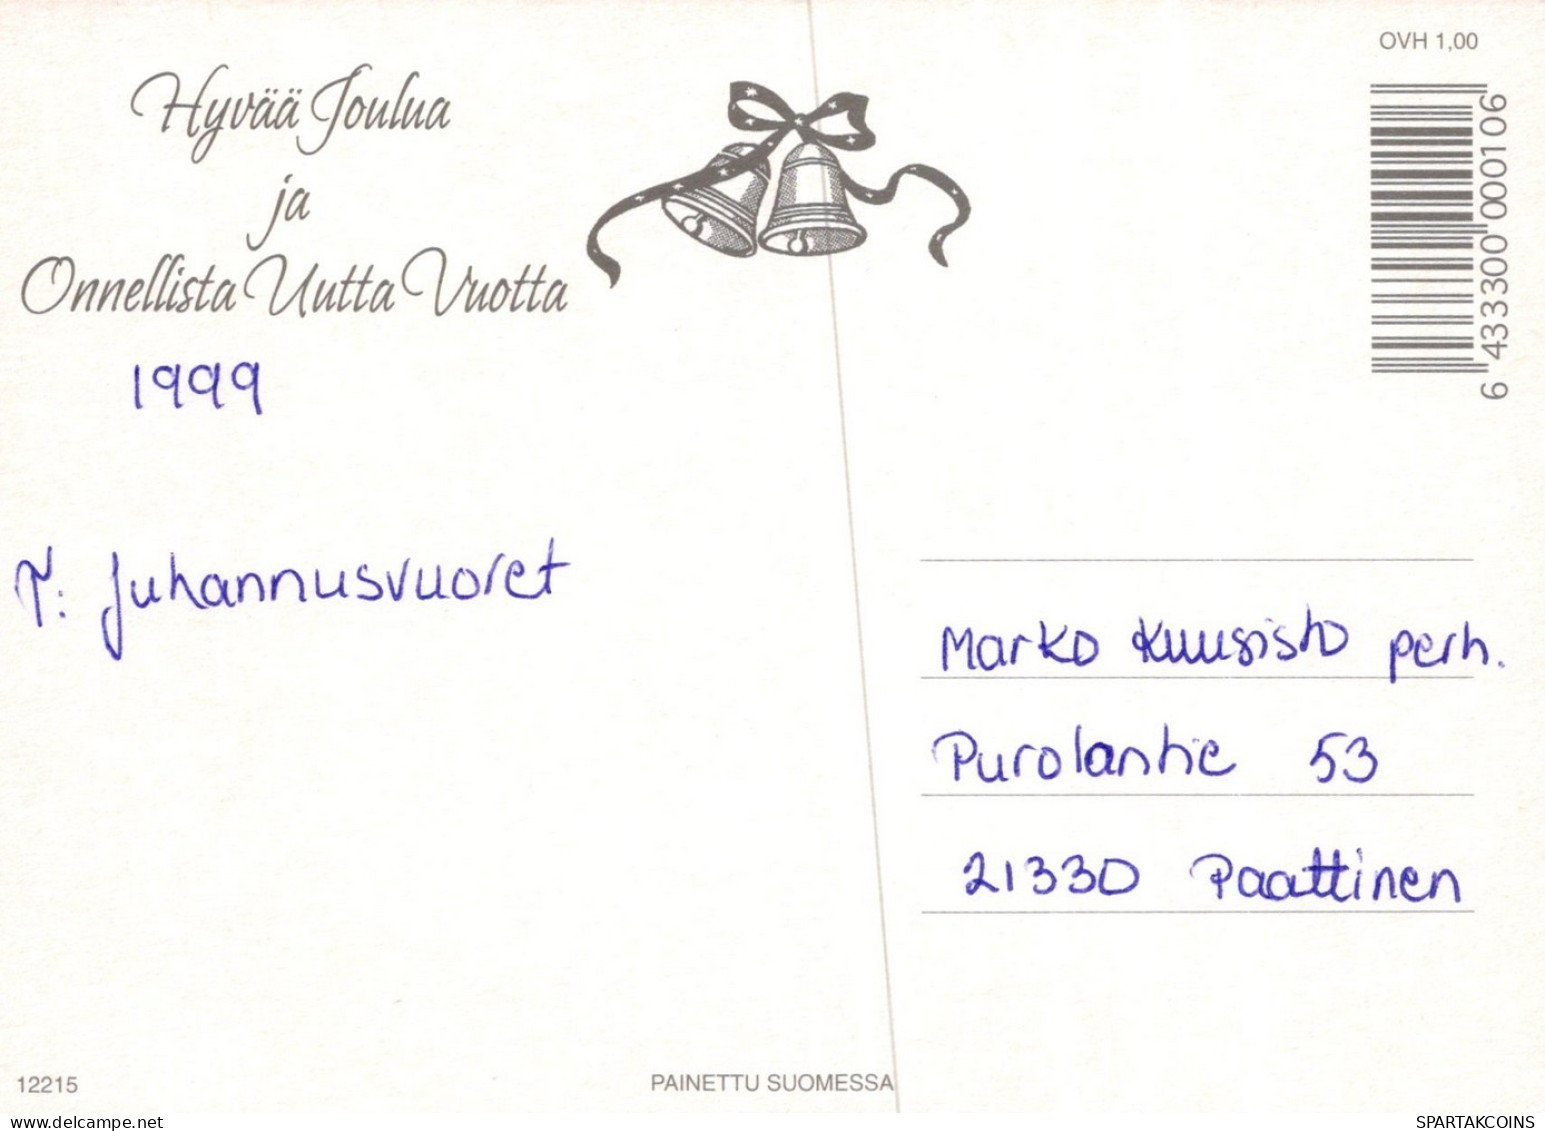 Hyvää Joulua
ja
Onnellista Uutta Vuotta
1999
T: Juhannusvuoret
OVH 1,00
6 433300 000106
Marko Kuusisto perh.
Purolantie 53
21330 Paattinen
12215
PAINETTU SUOMESSA
SPARTAKCOINS